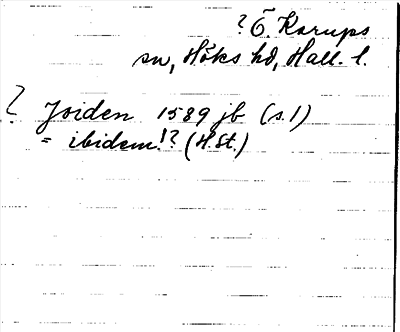 ? Ö. Karups
sn, Höks hd, Hall. l.
? Joiden 1589 jb (s. 1)
= ibidem!? (H. St.)